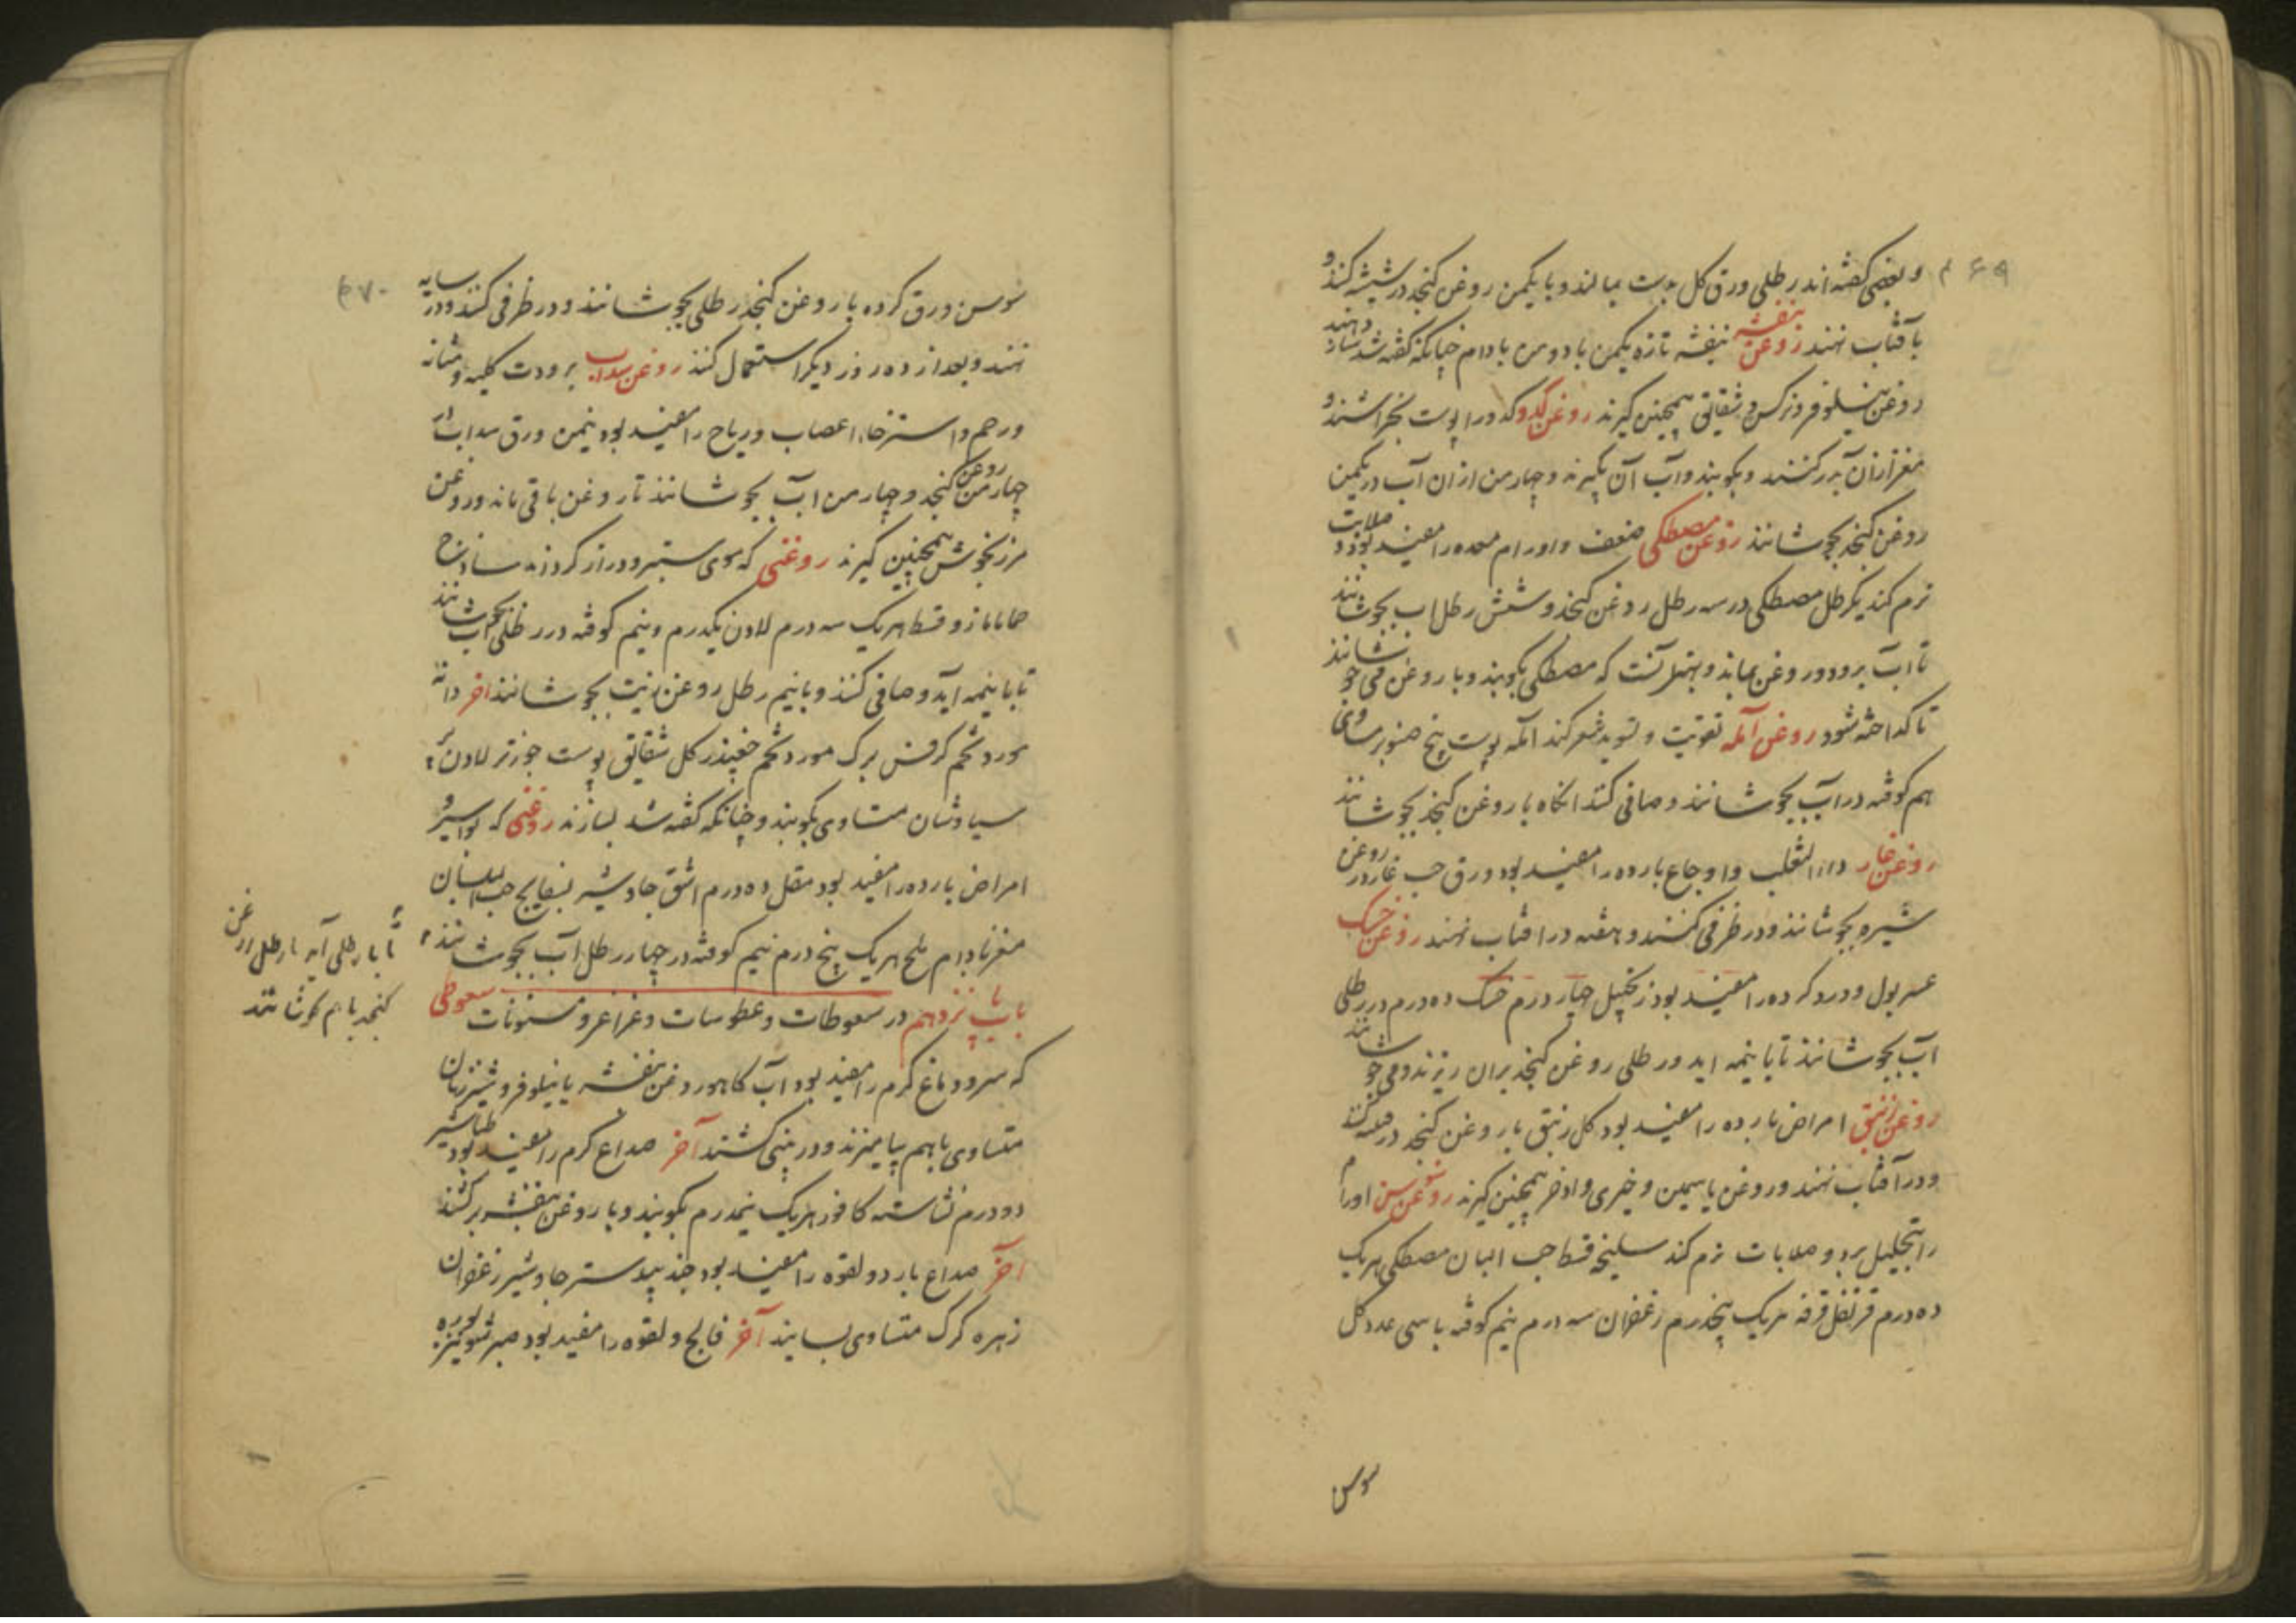 ۶۹
و بعضی گفته اند رطلی ورق گل بدست بمالند و با یکمن روغن کنجد در شیشه کنند و
بآفتاب نهند روغن بنفشه بنفشه تازه یکمن با دو من بادام چنانکه گفته شد
روغن نیلوفر و نرکس و شقایق همچنین گیرند روغن کدو کدو را پوست بخراشند و
مغز از آن برکنند و بکوبند و آب آن بگیرند و چهار من از ان آب در یکمن
روغن کنجد بجوشانند روغن مصطکی ضعف و اورام معده را مفید بود و صلابت
نرم کند یکرطل مصطکی در سه رطل روغن کنجد و شش رطل اب بجوشانند
تا اب برود و روغن بماند و بهتر آنست که مصطکی بکوبند و با روغن می جوشانند
تا کداخته شود روغن آمله تقویت و تسوید شعر کند آمله پوست بیخ صنوبر مساوی
هم کوفته در آب بجوشانند و صافی کنند انکاه با روغن کنجد بجوشانند
روغن غار داء الثعلب و اوجاع بارده را مفید بود ورق حب غار در روغن
شیره بجوشانند و در ظرفی کنند و هفته در افتاب نهند روغن خسک
عسر بول و درد کرده را مفید بود زنجبیل چهار درم خسک ده درم در رطلی
آب بجوشانند تا با نیمه اید و رطلی روغن کنجد بران ریزند و می جوشانند
روغن زنبق امراض بارده را مفید بود کل زنبق با روغن کنجد در شیشه کنند
و در آفتاب نهند و روغن یاسمین و خیری و اذخر همچنین گیرند روغن سوسن اورام
را تحلیل برد و صلابات نرم کند سلیخه قسط حب البان مصطکی هریک
ده درم قرنفل قرفه هریک پنجدرم زعفران سه درم نیم کوفته با سی عدد کل
سوسن
۷۰
سوسن ورق کرده با روغن کنجد رطلی بجوشانند و در ظرفی کنند و در سایه
نهند و بعد از ده روز دیگر استعمال کنند روغن سداب برودت کلیه و مثانه
و رحم و استرخاء اعصاب و ریاح را مفید بود نیمن ورق سداب
چهار من روغن کنجد و چهار من اب بجوشانند تا روغن باقی ماند و روغن
مرزنجوش همچنین گیرند روغنی که موی ستبر و دراز کرداند ساذج
حماما مازو قسط هریک سه درم لادن یکدرم و نیم کوفته در رطلی آب بجوشانند
تا با نیمه آید و صافی کنند و با نیم رطل روغن زیت بجوشانند آخر دانه
مورد تخم کرفس برک مورد تخم چغندر کل شقایق پوست جوز تر لادن
سیاوشان متساوی بکوبند و چنانکه گفته شد بسازند روغنی که بواسیر و
امراض بارده را مفید بود مقل ده درم اشق جاوشیر بسفایج حب البلسان
مغز بادام تلخ هریک پنج درم نیم کوفته در چهار رطل آب بجوشانند
تا با رطلی آید با رطلی روغن
کنجد باهم بجوشانند
باب پانزدهم در سعوطات و عطوسات و غراغر و سنونات سعوطی
که سر و دماغ گرم را مفید بود آب کاهو روغن بنفشه یا نیلوفر و شیر زنان
متساوی باهم بیامیزند و در بینی کشند آخر صداع گرم را مفید بود طباشیر
دو درم نشاسته کافور هریک نیمدرم بکوبند و با روغن بنفشه برکشند
آخر صداع بارد و لقوه را مفید بود جندبیدستر جاوشیر زعفران
زهره کرک متساوی بسایند آخر فالج و لقوه را مفید بود صبر شونیز بوره